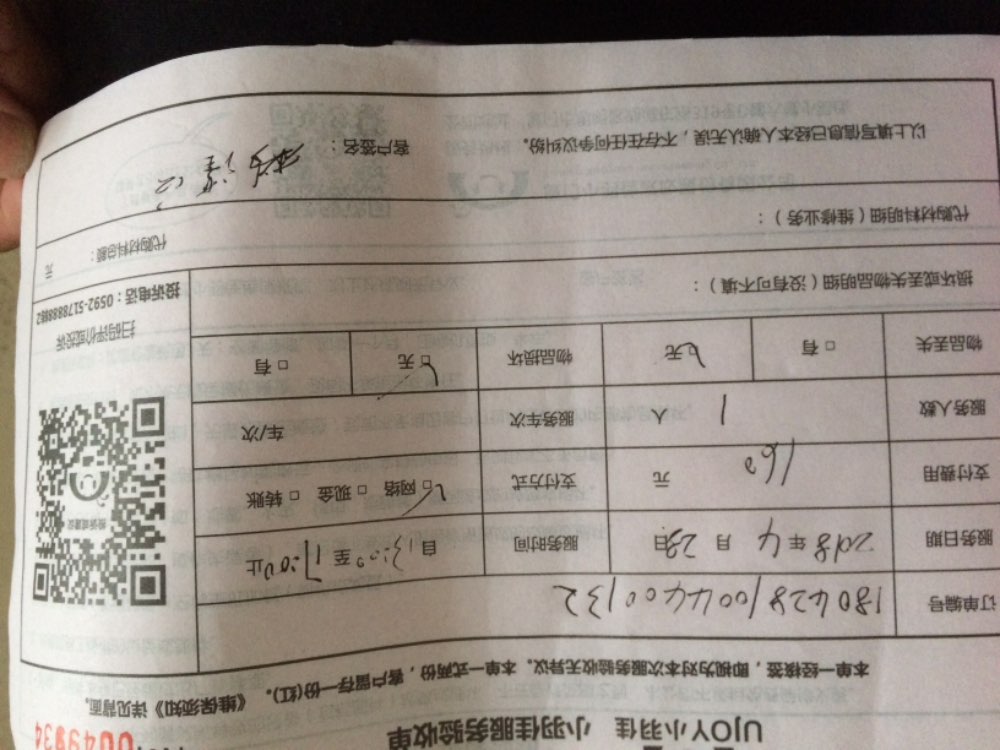 UJOY小羽佳 小羽佳服务验收单
0049934
本单一经核签,即视为对本次服务验收无异议。本单一式两份,客户留存一份(红)。《维保须知》详见背面。
订单编号 1804281004400132
服务日期 2018年4月28日 服务时间 自13:00至17:00止
支付费用 160 元 支付方式 □网络 □现金 □转账
服务人数 1 服务车次 车/次
物品丢失 □有 □无 物品损坏 □无 □有
投诉或建议
扫码评价或投诉
投诉电话:0592-517888882
损坏或丢失物品明细(没有可不填):
代购材料明细(维修业务): 代购材料总额: 元
以上填写信息已经本人确认无误,不存在任何争议纠纷。 客户签名: